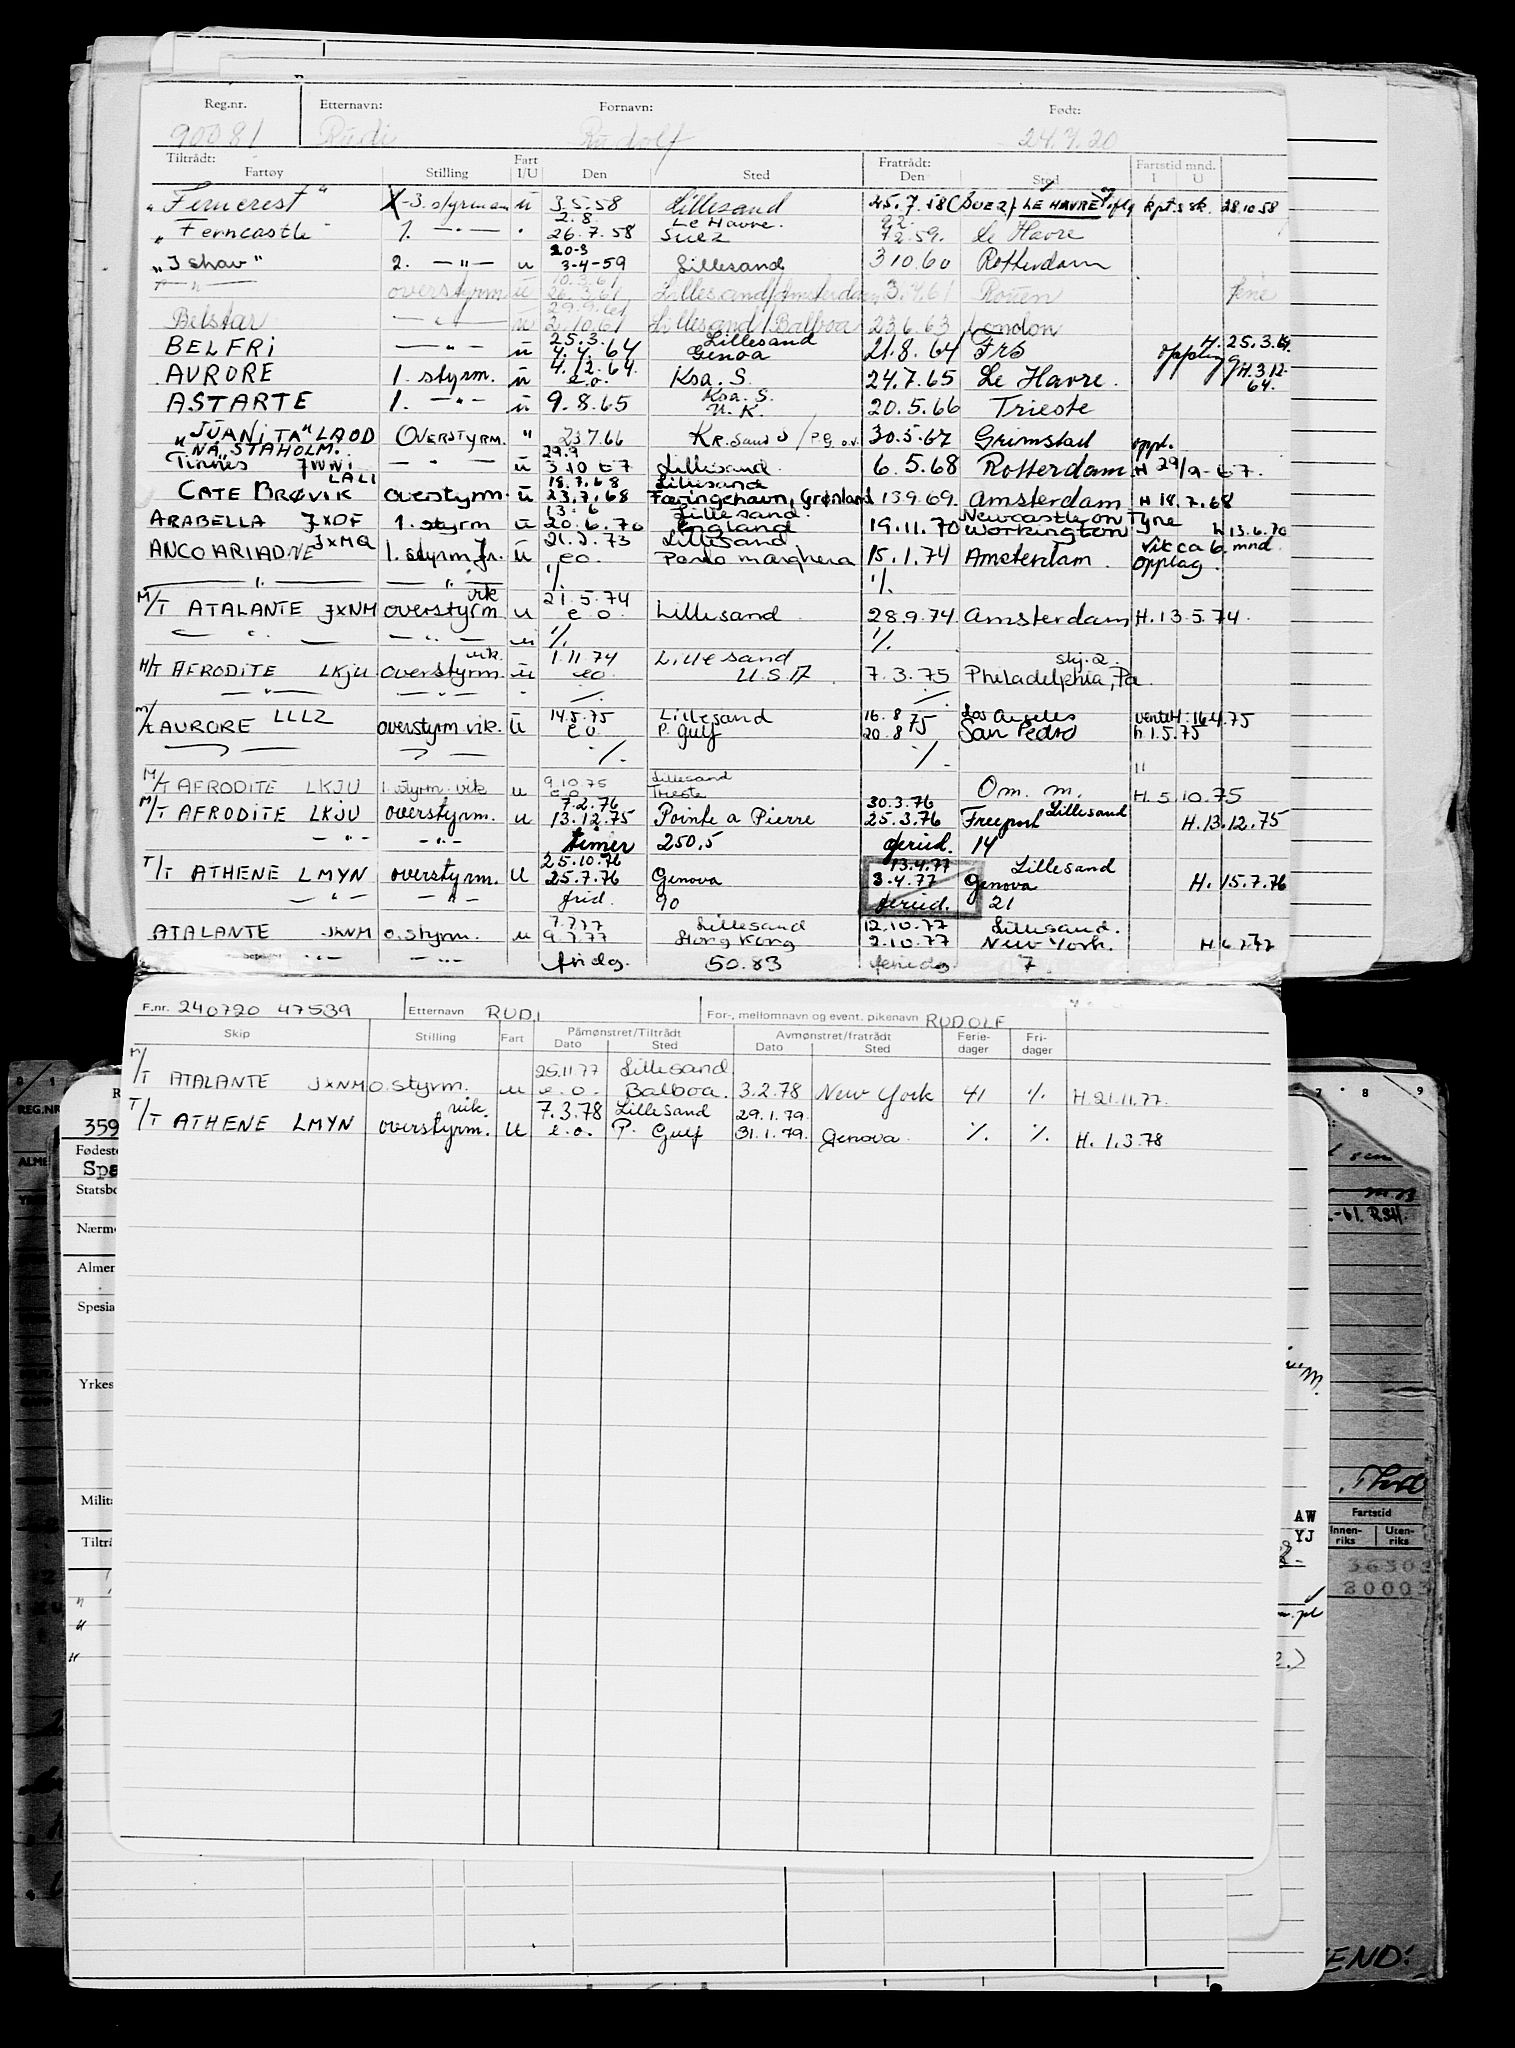 Reg.nr. Etternavn: Fornavn: Født:
90081 Rudi Rudolf 24.7.20
Tiltrådt: Fart Fratrådt: Fartstid mnd.
Fartøy Stilling I/U Den Sted Den Sted I U
"Ferncrest" 3. styrmann u 3.5.58 Lillesand 25.7.58 (SUEZ) LE HAVRE kpt.s sk. 28.10.58
2.8. Le Havre.
"Ferncastle" 1. — " — " 26.7.58 Suez 59. Le Havre
20-3
"Ishav" 2. — " — u 3-4-59 Lillesand 3 10.60 Rotterdam
10.3.61
— " — overstyrm u 26.3.61 Lillesand/Amsterdam 3.7.61 Rouen ferie
29.9.61
Belstar — " — u 2.10.61 Lillesand/Balboa 23.6.63 London
25.3. Lillesand H. 25.3.64
BELFRI — " — u 4.4.64 Genoa 21.8.64 Frs oppling
4.12.64. H.3.12
AURORE 1. styrm. u e.o. Ksa. S. 24.7.65 Le Havre. 64.
Ksa. S.
ASTARTE 1. — " — u 9.8.65 U.K. 20.5.66 Trieste
"JUANITA" LAOD OVERSTYRM. " 23.7.66 KR.Sand S / P.G. o.v. 30.5.67 Grimstad oppl.
NÅ "STAHOLM. 29.9
Tinnes JWNI — " — u 3.10 67 Lillesand 6.5.68 Rotterdam H 29/9-67.
LALI 18.7.68 Lillesand
CATE BRØVIK overstyrm. u 23.7.68 Færingehavn, Grønland 13.9.69. Amsterdam H 18.7.68
13.6 Lillesand. Newcastle on Tyne
ARABELLA JXDF 1. styrm u 20.6.70 England 19.11.70 Workington h 13.6.70
JXMQ 21.2.73 Lillesand Vik ca 6 mnd.
ANCO ARIADNE 1. styrm Jr. u eo. Porto marghera 15.1.74 Amsterdam. opplag.
— " — — " — ·/. ·/.
vik 21.5.74
M/T ATALANTE JXNM overstyrm u e.o. Lillesand 28.9.74 Amsterdam H.13.5.74.
— " — — " — u ·/. ·/.
vik. 1.11.74 Lillesand skj.2.
M/T AFRODITE LKJU overstyrm. u eo. U.S.A. 7.3.75 Philadelphia, Pa.
— " — — " — ·/. ·/.
14.5.75 Lillesand 16.8 75 Los Angeles Vente H: 16.4.75
M/T AURORE LLLZ overstyrm vik. u e.o. P. Gulf 20.8 San Pedro h 1.5.75
·/. ·/.
9.10.75 Lillesand
M/T AFRODITE LKJU 1. styrm. vik u e.o. Trieste Om. m. H.5.10.75
7.2.76 30.3.76 Lillesand
M/T AFRODITE LKJU overstyrm. u 13.12.75 Pointe a Pierre 25.3.76 Freeport H.13.12.75
— " — — " — timer 250,5 feried. 14
25.10.76 13.4.77 Lillesand
T/T ATHENE LMYN overstyrm. u 25.7.76 Genova 3.4.77 Genova H. 15.7.76
— " — — " — frid. 90 feried. 21
7.7.77 Lillesand 12.10.77 Lillesand.
ATALANTE JXNM o.styrm. u 9.7.77 Hong Kong 2.10.77 New York.
— " — — " — fridg. 50.83 feriedg. 7
F.nr. 240720 47539 Etternavn RUDI For-, mellomnavn og event. pikenavn RUDOLF
Skip Stilling Fart Påmønstret/Tiltrådt Avmønstret/fratrådt Ferie- Fri-
Dato Sted Dato Sted dager dager
25.11.77 Lillesand
M/T ATALANTE JXNM o.styrm. u e.o. Balboa 3.2.78 New York 41 ·/. H.21.11.77.
vik. 7.3.78 Lillesand 29.1.79.
T/T ATHENE LMYN overstyrm. u e.o. P. Gulf 31.1.79. Genova. ·/. ·/. H. 1.3.78
REG.NR
359
ALME
Fødeste
Spa
Statsbo
Nærme
Almer
Spesia
Yrkes
Milit
Tiltrå
7 8 9
-61. RSH.
AW
YJ
Fartstid
Innen-
riks
Uten-
riks
END: